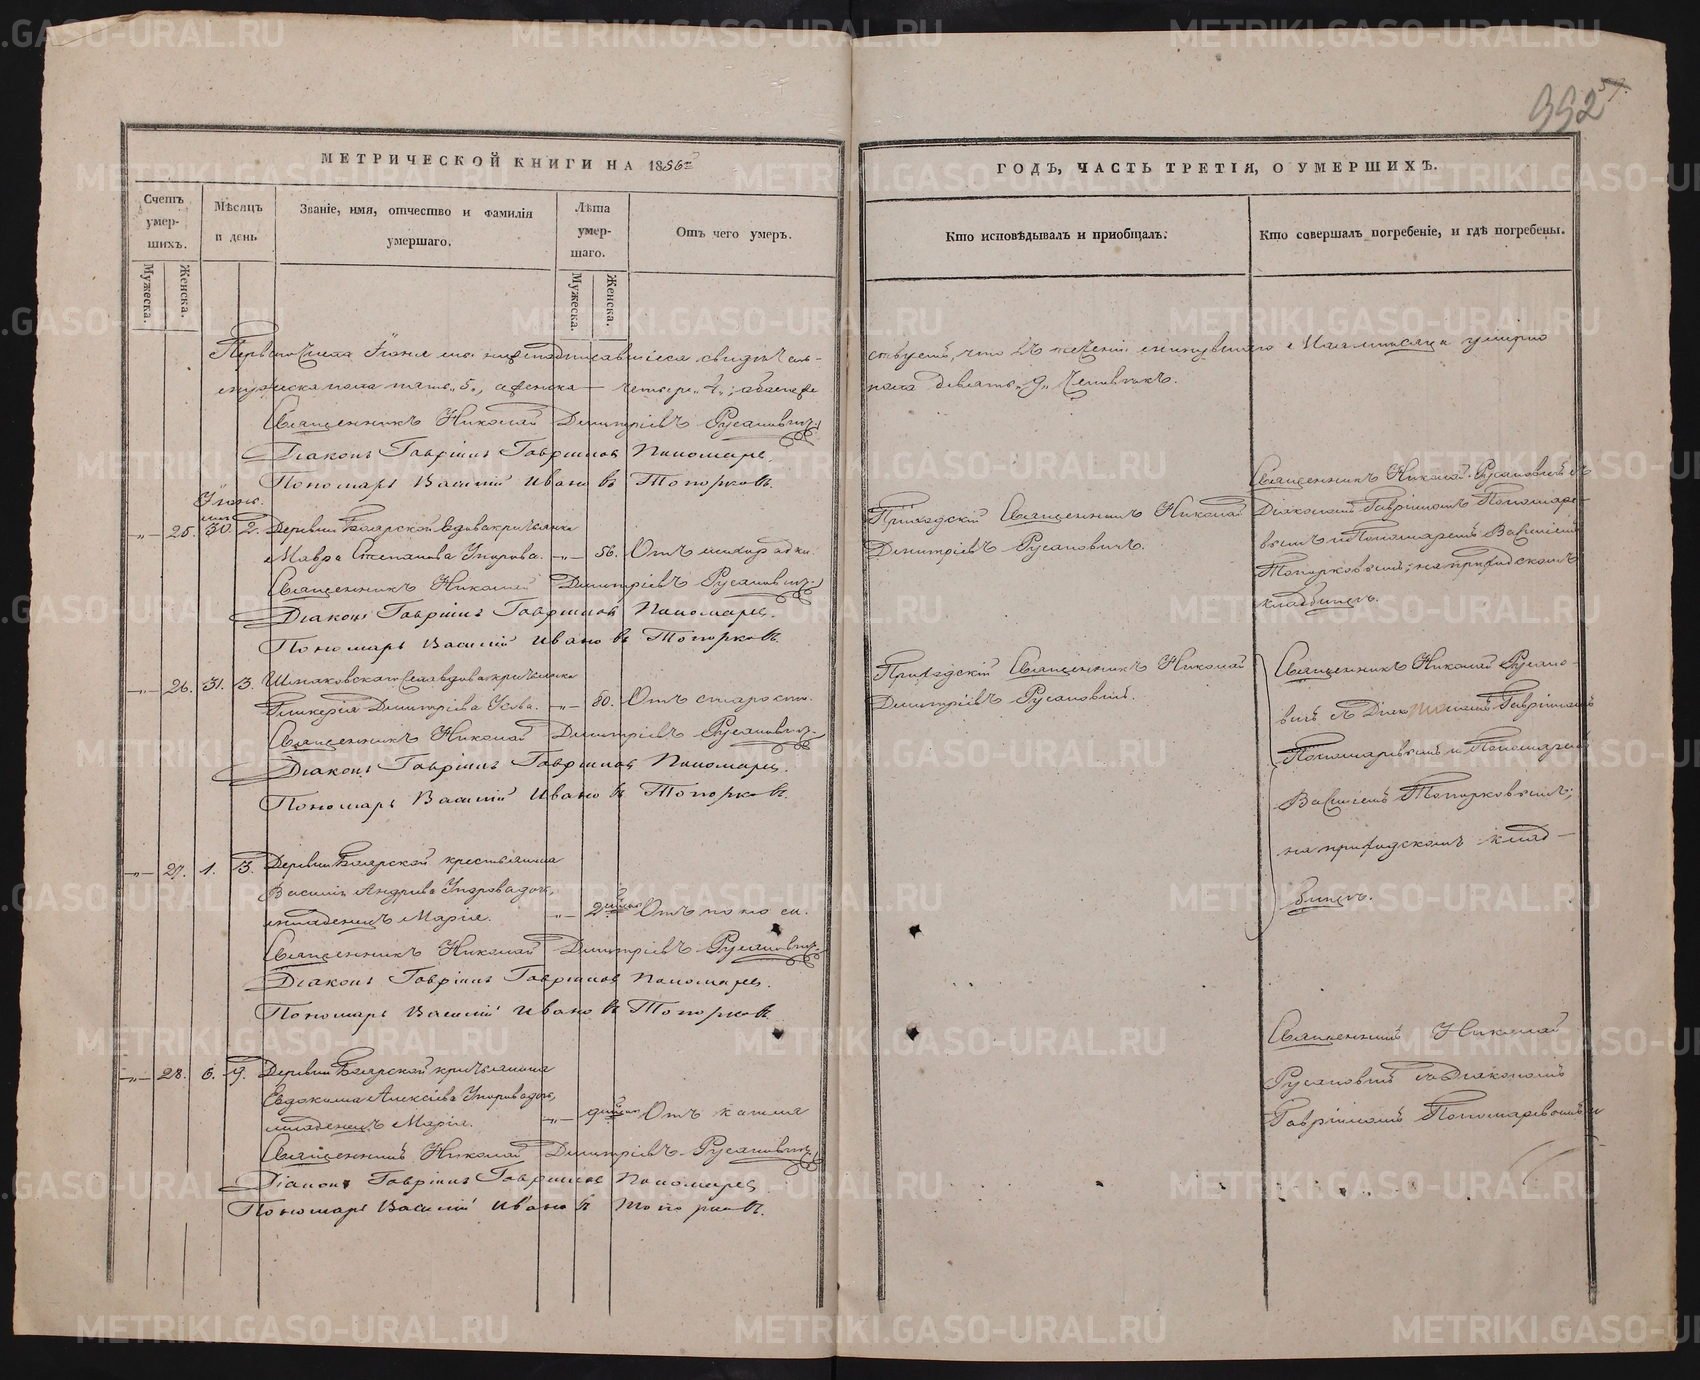 992
57.
МЕТРИЧЕСКОЙ КНИГИ НА 1856й
ГОДЪ, ЧАСТЬ ТРЕТІЯ, О УМЕРШИХЪ.
Счетъ умер-шихъ.
Мѣсяцъ и день
Званіе, имя, отчество и фамилія умершаго.
Лѣта умер-шаго.
Отъ чего умеръ.
Кто исповѣдывалъ и пріобщалъ.
Кто совершалъ погребеніе, и гдѣ погребены.
Мужеска.
Женска.
Мужеска.
Женска.
Перваго числа Іюня мы нижеподписавшіеся свидѣтель-
ствуемъ, что въ теченіи минувшаго Мая мѣсяца умерло
мужеска пола пять „5„ а женска четыре „4„; обоего
пола девять „9„ человѣкъ.
Священникъ Николай Димитріевъ Русановичъ
Діаконъ Гавріилъ Гавріиловъ Пономаревъ
Пономарь Василій Ивановъ Топорковъ.
Іюнь
25. 30. 2. Деревни Боярской вдова крестьянка
Мавра Степанова 56. Отъ лихорадки.
Приходскій Священникъ Николай
Димитріевъ Русановичъ.
Священникъ Николай Русановичъ съ
Діакономъ Гавріиломъ Пономаре-
вымъ и Пономаремъ Василіемъ
Топорковымъ; на приходскомъ
кладбищѣ.
Священникъ Николай Димитріевъ Русановичъ
Діаконъ Гавріилъ Гавріиловъ Пономаревъ.
Пономарь Василій Ивановъ Топорковъ.
26. 31. 3. вдова крестьянка
Гликерія Димитріева 80. Отъ старости.
Приходскій Священникъ Николай
Димитріевъ Русановичъ.
Священникъ Николай Русано-
вичъ съ Діакономъ Гавріиломъ
Пономаревымъ и Пономаремъ
Василіемъ Топорковымъ;
на приходскомъ клад-
бищѣ.
Священникъ Николай Димитріевъ Русановичъ
Діаконъ Гавріилъ Гавріиловъ Пономаревъ.
Пономарь Василій Ивановъ Топорковъ.
27. 1. 3. Деревни Боярской крестьянина
Василія Андреева дочь,
младенецъ Марія. 2 Отъ поноса.
Священникъ Николай Димитріевъ Русановичъ
Діаконъ Гавріилъ Гавріиловъ Пономаревъ.
Пономарь Василій Ивановъ Топорковъ
28. 6. 9. Деревни Боярской крестьянина
Евдокима Алексѣева дочь,
младенецъ Марія. Отъ кашля
Священникъ Николай
Русановичъ съ Діакономъ
Гавріиломъ Пономаревымъ и
Священникъ Николай Димитріевъ Русановичъ
Діаконъ Гавріилъ Гавріиловъ Пономаревъ
Пономарь Василій Ивановъ Топорковъ.
METRIKI.GASO-URAL.RU